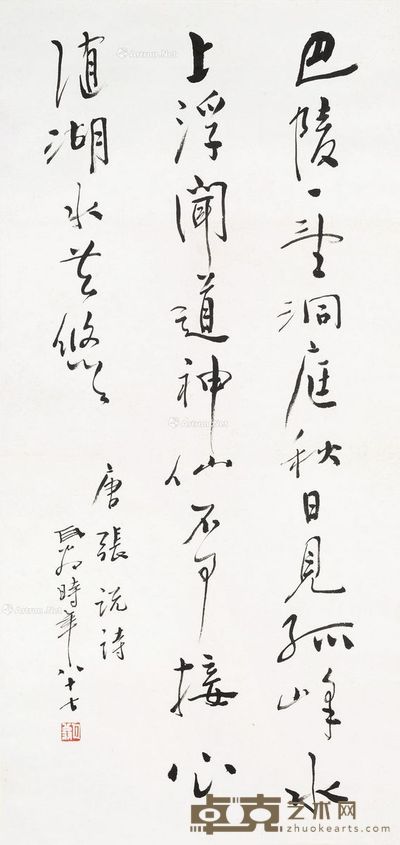 巴陵一望洞庭秋日見孤峰水
上浮聞道神仙不可接心
随湖水共悠々
唐張説詩
時年八十七
卓克艺术网
zhuokearts.com